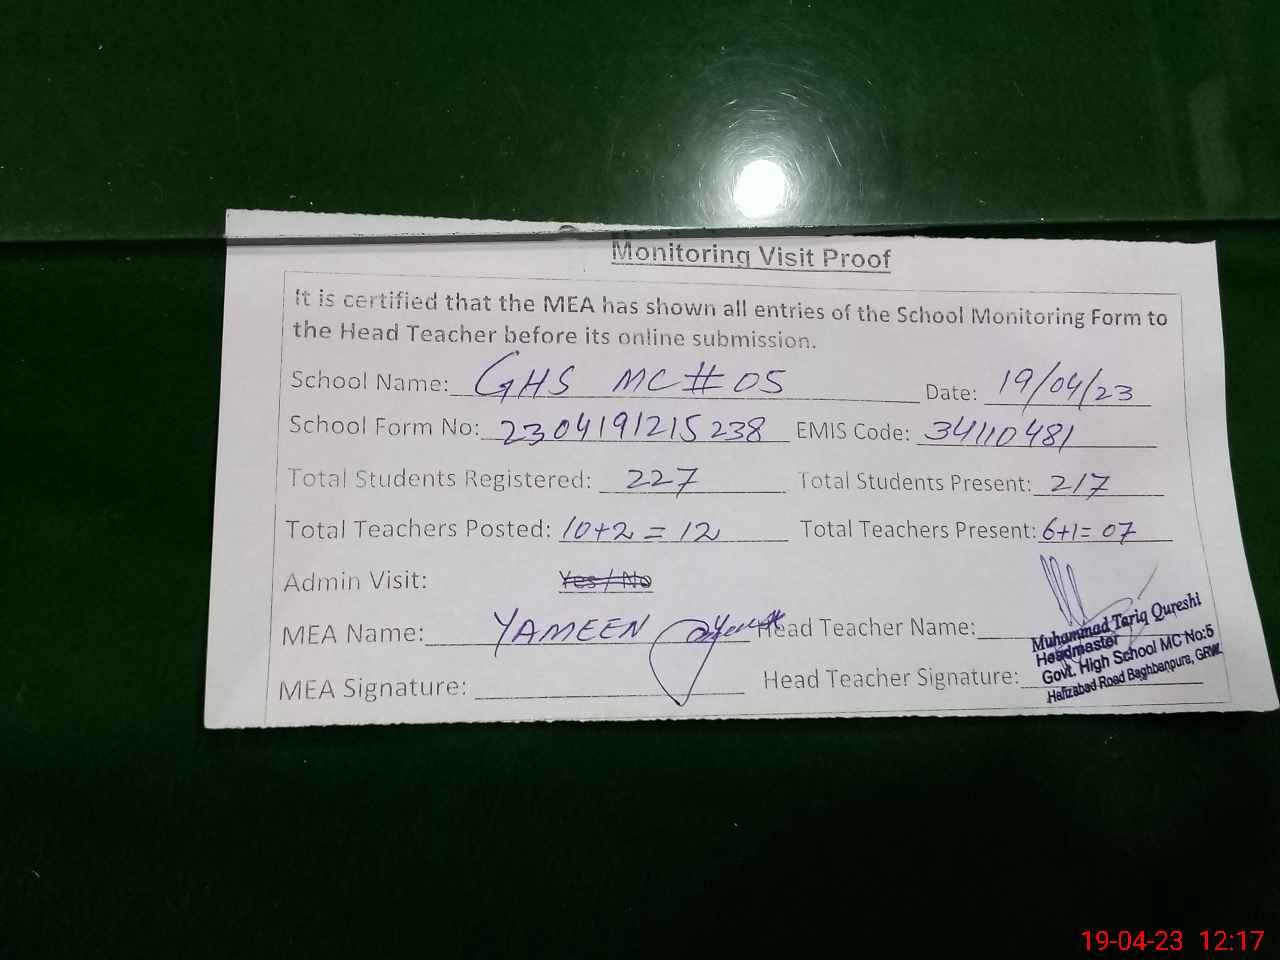 Monitoring Visit Proof
It is certified that the MEA has shown all entries of the School Monitoring Form to
the Head Teacher before its online submission.
School Name: GHS MC # 05 Date: 19/04/23
School Form No: 2304191215238 EMIS Code: 34110481
Total Students Registered: 227 Total Students Present: 217
Total Teachers Posted: 10+2 = 12 Total Teachers Present: 6+1= 07
Admin Visit: Yes / No
MEA Name: YAMEEN Head Teacher Name:
MEA Signature: Head Teacher Signature:
Muhammad Tariq Qureshi
Headmaster
Govt. High School MC No:5
Hafizabad Road Baghbanpura, GRW.
19-04-23 12:17